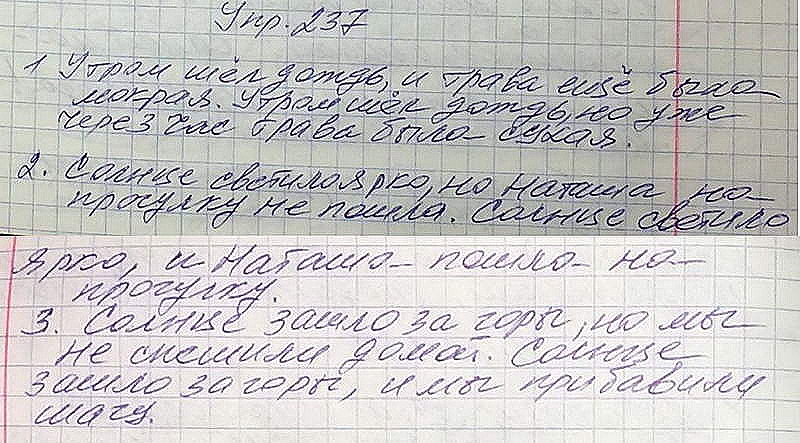 Упр. 237
1 Утром шёл дождь, и трава ещё была
мокрая. Утром шёл дождь, но уже
через час трава была сухая.
2. Солнце светило ярко, но Наташа на
прогулку не пошла. Солнце светило
ярко, и Наташа пошла на
прогулку.
3. Солнце зашло за горы, но мы
не спешили домой. Солнце
зашло за горы, и мы прибавили
шагу.